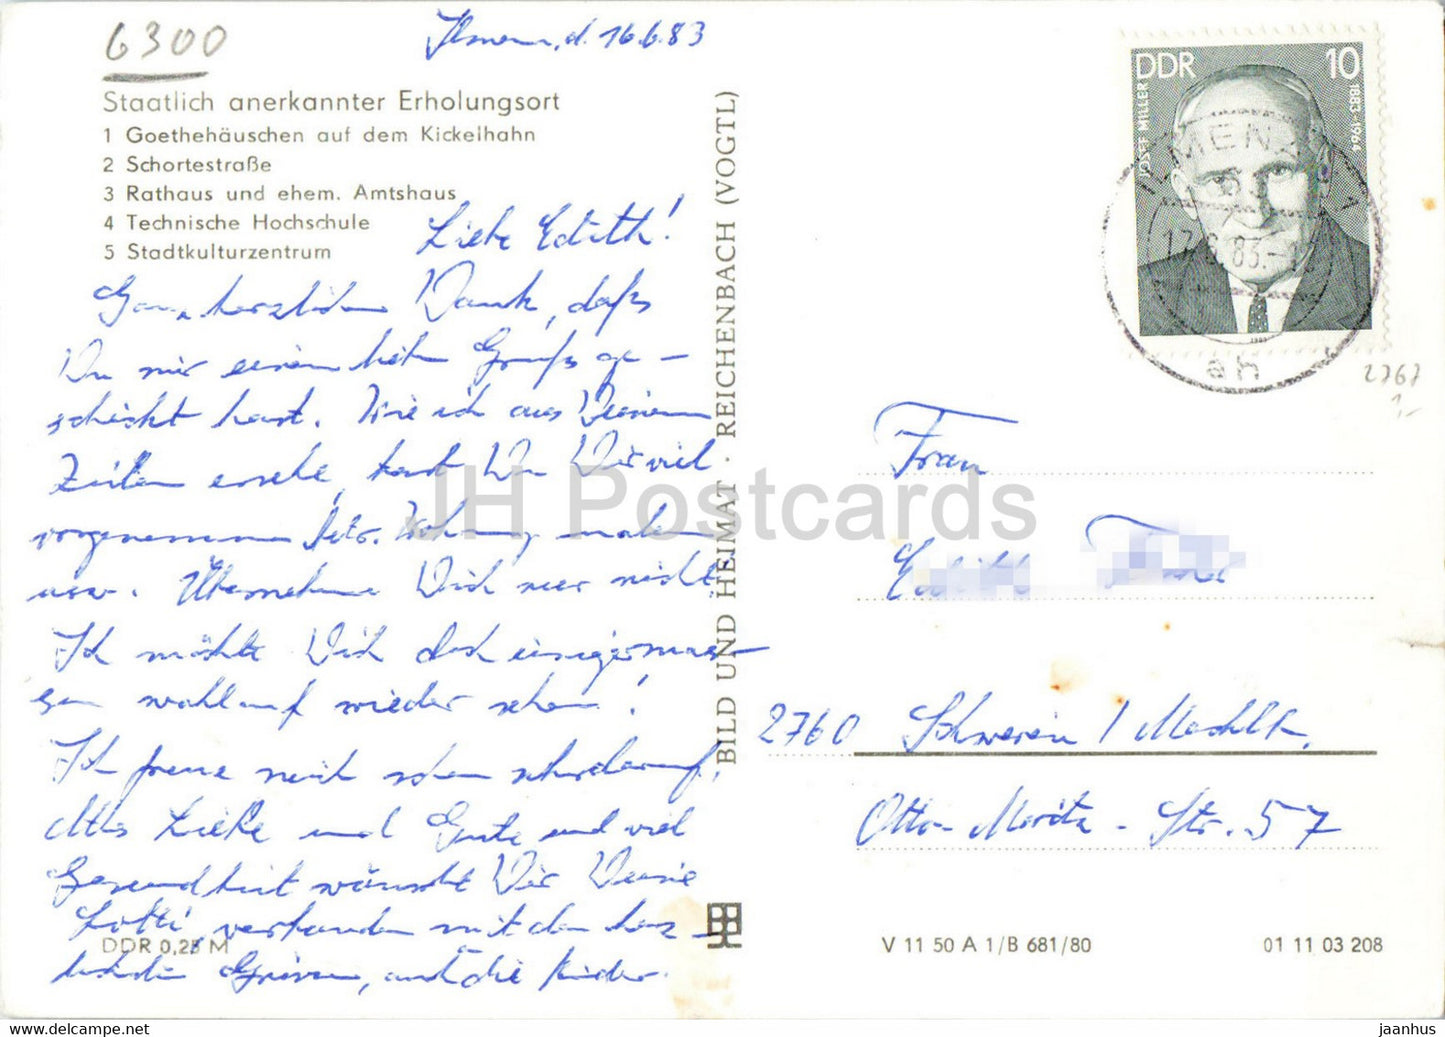 6300
Ilmenau, d. 16.6.83
Staatlich anerkannter Erholungsort
1 Goethehäuschen auf dem Kickelhahn
2 Schortestraße
3 Rathaus und ehem. Amtshaus
4 Technische Hochschule
5 Stadtkulturzentrum
Liebe Edith!
Ganz herzlichen Dank, daß
Du mir einen lieben Gruß ge-
schickt hast. Wie ich aus Deinen
Zeilen ersehe, hast Du Dir viel
vorgenommen betr. Wohnung malen
usw. Übernehme Dich nur nicht!
Ich möchte Dich doch einigermas-
sen wohlauf wieder sehen!
Ich freue mich schon sehr darauf.
Alles Liebe und Gute und viel
Gesundheit wünscht Dir Deine
Lotti, verbunden mit den herz-
lichsten Grüssen, auch die Kinder.
DDR 0,25 M
BILD UND HEIMAT · REICHENBACH (VOGTL)
DDR 10
JOSEF MILLER 1883-1964
ILMENAU
17.6.83
ah
2767
1,-
Frau
Edith
2760 Schwerin / Mecklb.
Otto-Moritz-Str. 57
V 11 50 A 1/B 681/80
01 11 03 208
JH Postcards
jaanhus ~ www.delcampe.net